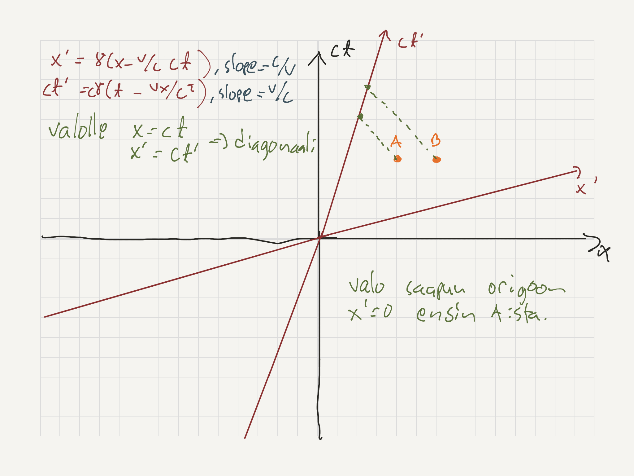 x' = γ(x - v/c ct), slope = c/v
ct' = cγ(t - vx/c²), slope = v/c
valolle x = ct
x' = ct' => diagonaali
ct
ct'
A B
x'
x
valo saapuu origoon
x'=0 ensin A:sta.